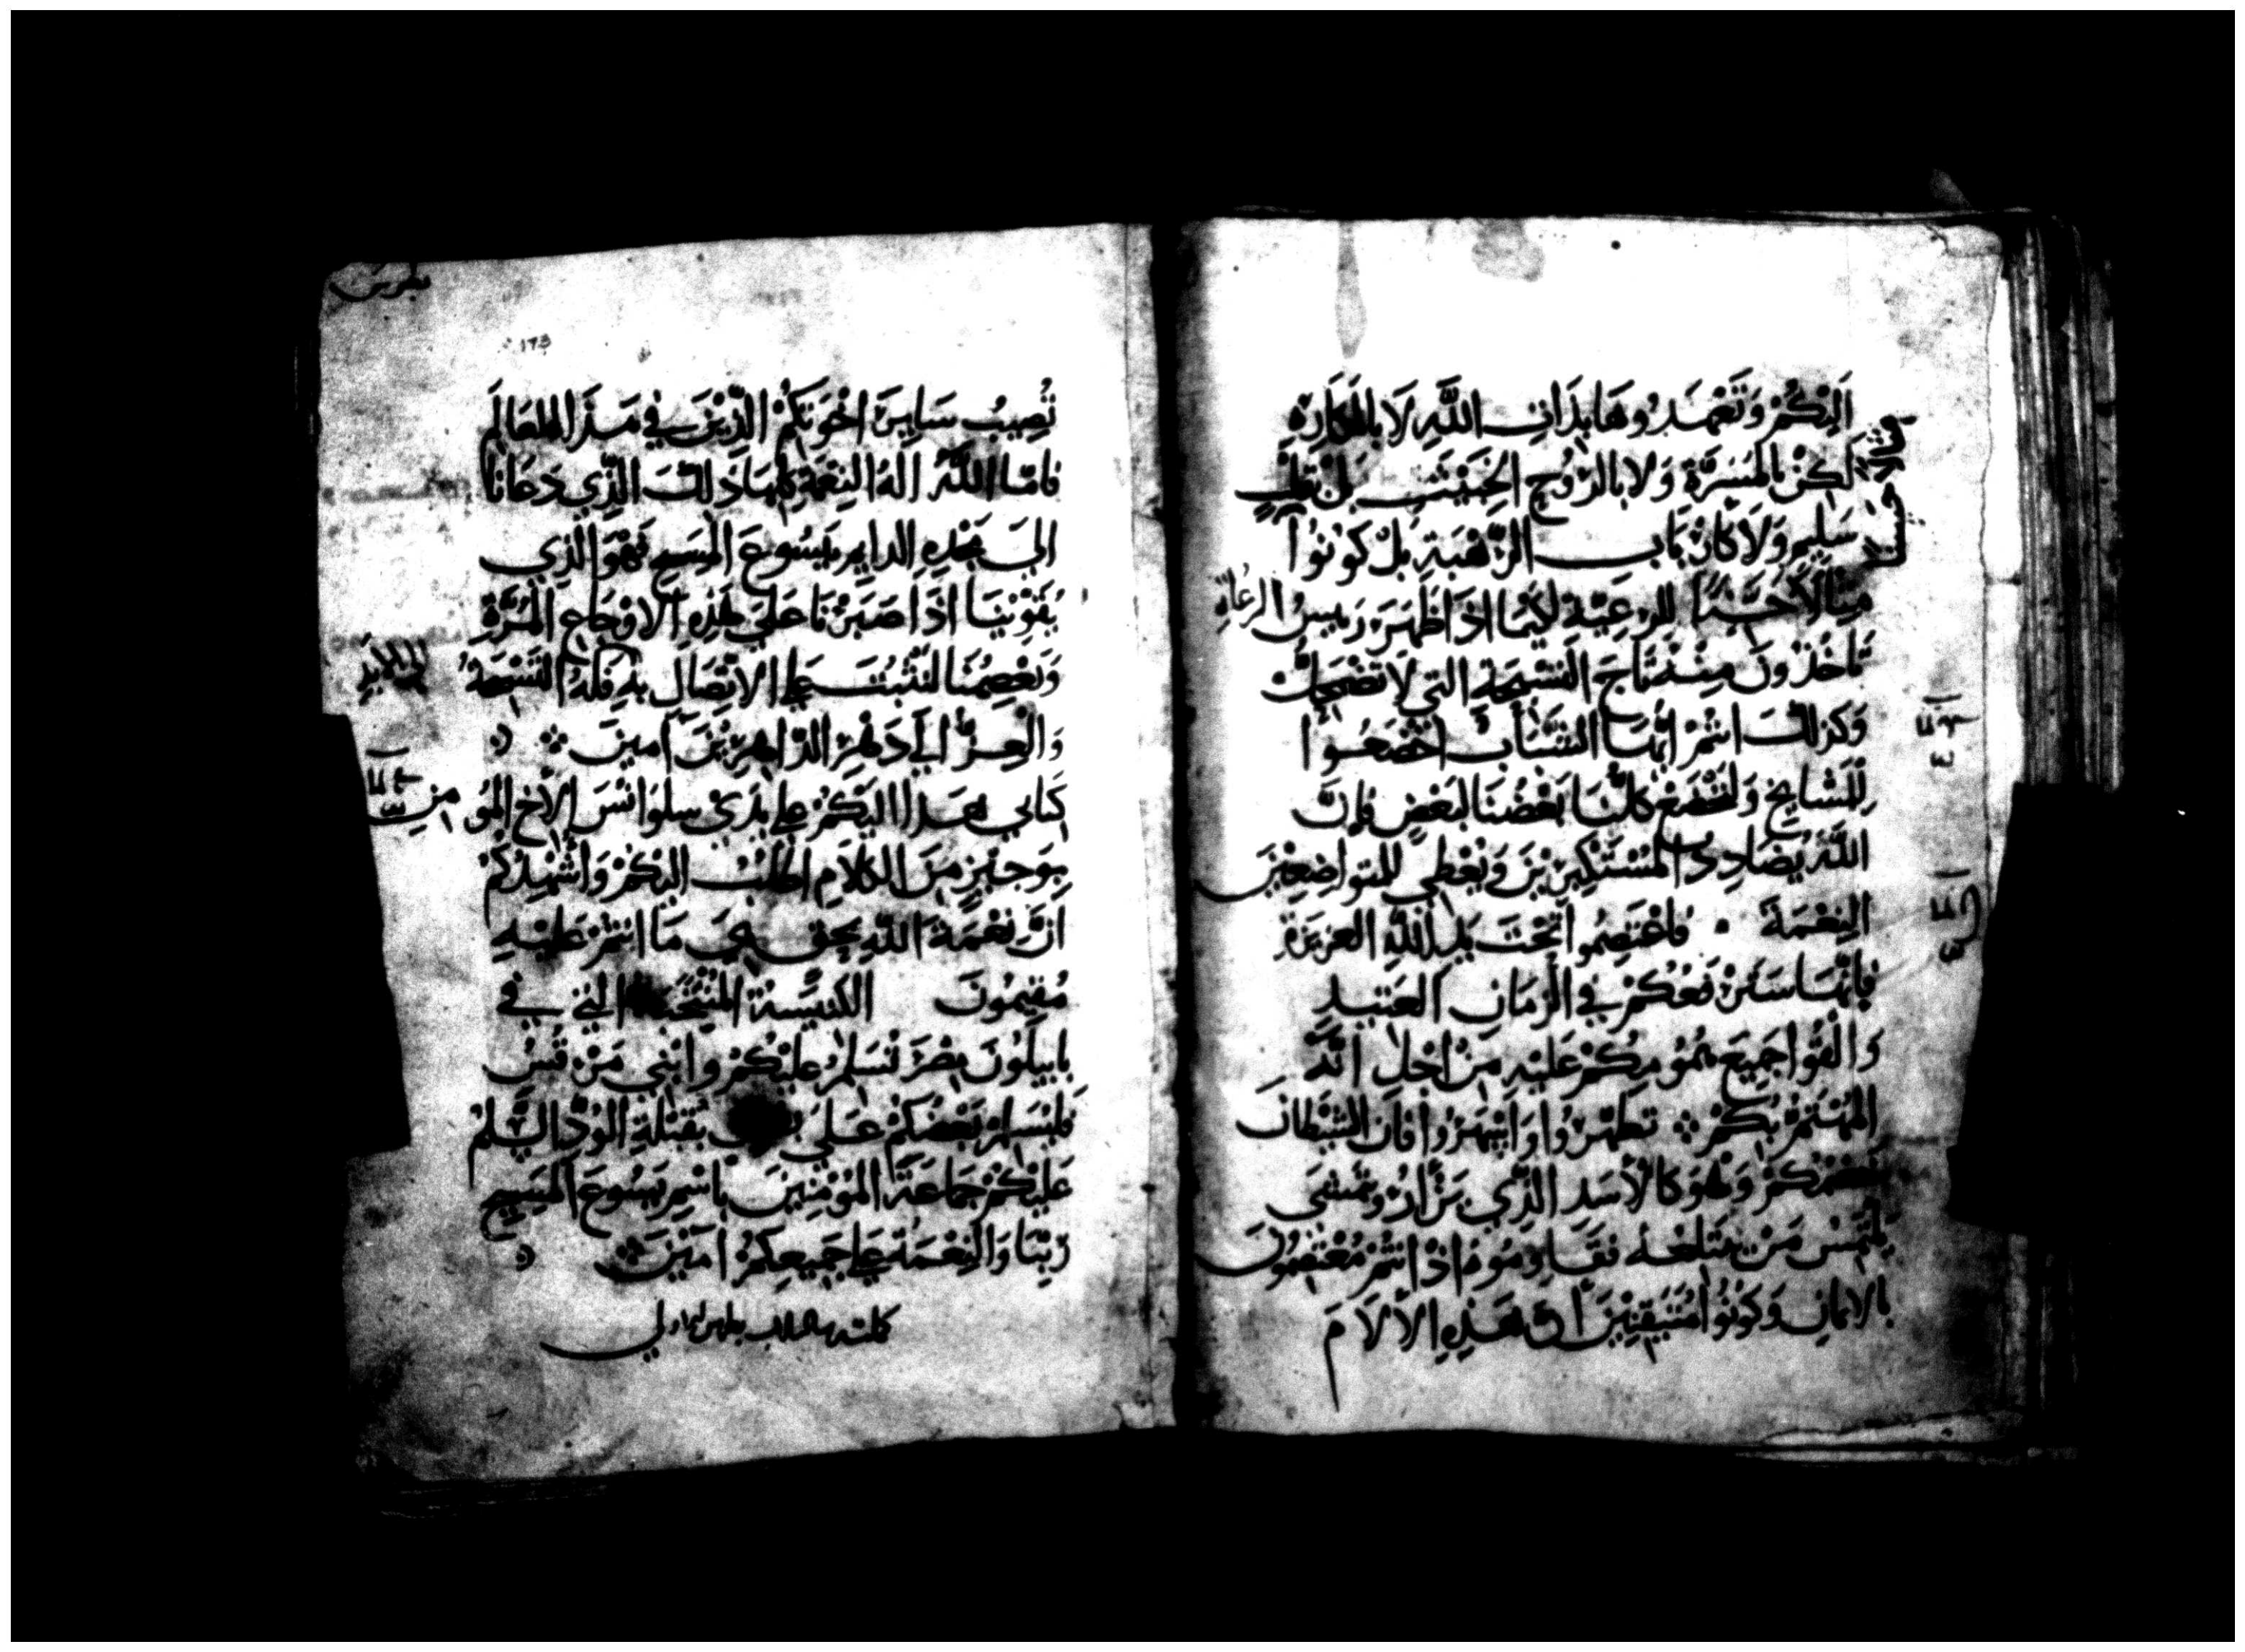 اَلَيْكُمْ وَتَعْهَدُوهَا بِذَاتِ اللَّهِ لَا بِالْمَكَارِهِ
لَكِنْ بِالْمَسَرَّةِ وَلَا بِالرُّوحِ الْخَبِيْثِ بَلْ بِقَلْبٍ
سَلِيمٍ وَلَا كَأَرْبَابِ الرَّهْبَةِ بَلْ كُونُوا
مِثَالًا حَسَنًا لِلرَعِيَّةِ لَكَيْمَا اذَا ظَهَرَ رَئِيسُ الرُعَاةِ
تَاخُذُونَ مِنْهُ تَاجَ التَسْبِحَةِ التي لَا تَضْمَحِلّ
وَكَذلكَ انتُمْ ايُّهَا الشَّبَابُ اخْضَعُوا
لِلْمَشَايِخِ وَلْنَخْضَعْ كُلُّنَا بَعْضُنَا لِبَعْضٍ فَإِنَّ
اللَّهَ يُضَادِدُ الْمُسْتَكْبِرِيْنَ وَيُعْطِي لِلمتواضِعِيْنَ
النِعْمَةَ ۰ فَاعْتَصِمُوا تَحْتَ يَدِ اللَّهِ العَزِيزَةِ
فَإِنَّهَا سَتَرْفَعُكُمْ فِي الزَمَانِ العَتِيدِ
وَالْقُوا جَمِيْعَ هُمُومِكُمْ عَلَيْهِ مِنْ اجْلِ انَّهُ
الْمُهْتَمُّ بِكُمْ ۞ تَطَهَّرُوا وَاسْهَرُوا فَانَ الشَيْطَانَ
خَصْمُكُمْ وَهُوَ كَالْأَسَدِ الَّذِي يَزْأَرُ وَيَمْشِي
يَلْتَمِسُ مَنْ يَبْتَلِعُهُ فَقَاوِمُوهُ اذْ انْتُمْ مُعْتَصِمُونَ
بالايمانِ وَكُونُوا مُتَيَقِّنِيْنَ أنّ هَذِهِ الْآلَامَ
بطرس
173
تُصِيبُ سَايِرَ اخْوَتِكُمُ الَّذِيْنَ فِي هَذَا الْعَالَمِ
فَامَّا اللَّهُ الهُ النِعْمَةِ كُلِّهَا ذَلكَ الَّذِي دَعَانَا
الَى مَجْدِهِ الدَايِمِ بِيَسُوعَ الْمَسِيحِ فَهْوَ الَّذِي
يُقَوِّيْنَا اذَا صَبَرْنَا عَلَى هَذِهِ الاوْجَاعِ الْمُرَّةِ
وَيَعْصِمُنَا لِنَثْبُتَ عَلى الِاتِّصَالِ بِهِ فَلَهُ التَسْبِحَةُ
وَالْعِزُّ الَى دَهْرِ الدَّاهِرِيْنَ آمِينَ ۞
كِتَابِي هَذَا الَيْكُمْ عَلى يَدَيْ سِلْوَانُسَ الْأَخِ المُو
منِ
بِوَجِيْزٍ مِنَ الكَلَامِ اكْتُبُ الَيْكُمْ وَاشْهِدُكُمْ
انَّ نِعْمَةَ اللَّهِ بِحَقٍّ هِيَ مَا انْتُمْ عَلَيْهِ
مُقِيْمُونَ الكَنِيْسَةُ الْمُنْتَخَبَةُ الَّتِي فِي
بَابِيلُونَ مِصْرَ تُسَلِّمُ عَلَيْكُمْ وَابْنِي مَرْقُسُ
فَلْيُسَلِّمْ بَعْضُكُمْ عَلَى بَعْضٍ بِقُبْلَةِ الوُدِّ السَّلمُ
عَلَيْكُمْ جَمَاعَةَ الْمُؤمِنِيْنَ بِاسْمِ يَسُوعَ الْمَسِيحِ
رَبِّنَا وَالنِعْمَةُ عَلى جَمِيعِكُمْ آمِيْنَ ۞
كملت رسالة بطرس الاولى